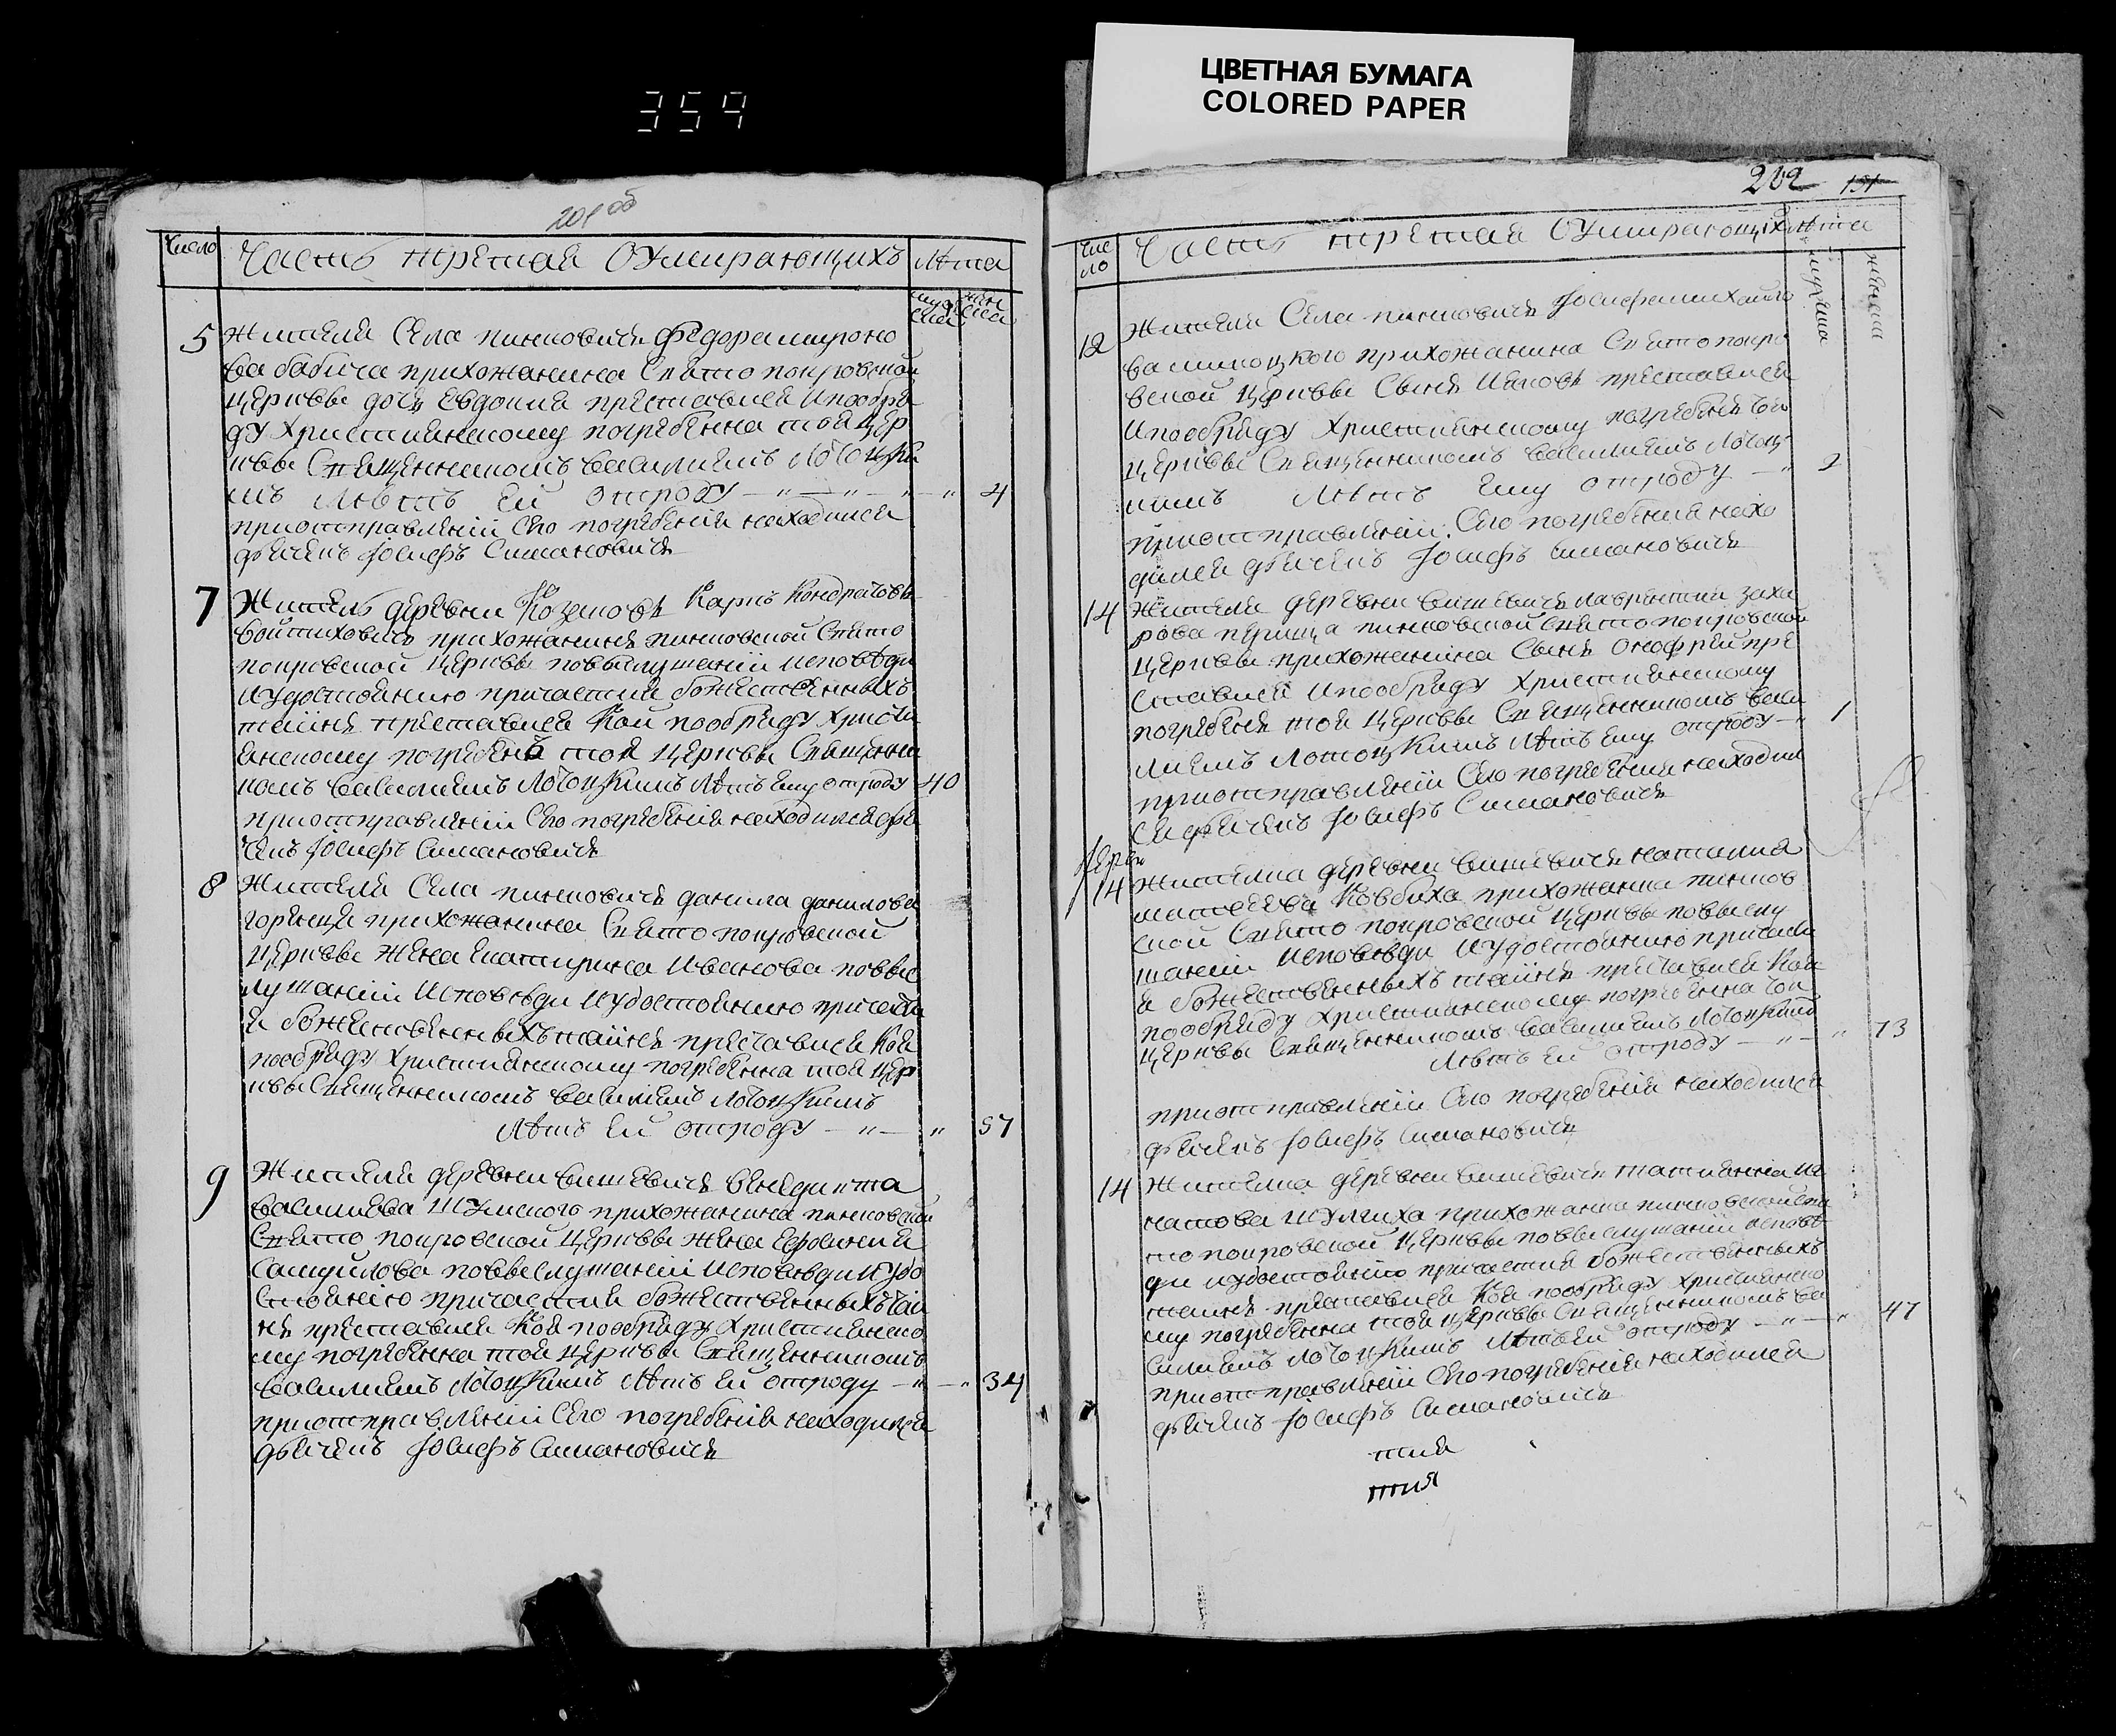 ЦВЕТНАЯ БУМАГА
COLORED PAPER
359
201 об
Число Часть третая О Умирающихъ Лѣта
муже женс
5 Жителя Села пинковичъ Федора мироно
ва бабича прихожанина Свято покровской
Церквы дочь Евдокия преставися И пообря
ду Християнскому погребенна тоя Цер
квы Священникомъ василиемъ
мъ Лѣтъ Ей отроду 4
приотправленіи Сего погребенія находился
дьячекъ Иосифъ Симановичъ
7 Житель деревни Карпъ Кондратовъ
Войтиховичъ прихожанинъ пинковской Свято
покровской Церквы повыслушаніи исповѣди
Иудостоѣнию причастия божественныхъ
тайнъ преставися Кой пообряду Христи
анскому погребенъ тоя Церквы Священни
комъ василиемъ Лѣтъ Ему отроду 40
приотправленіи Сего погребенія находился дья
чекъ Иосифъ Симановичъ
8 Жителя Села пинковичъ данила данилова
прихожанина Свято покровской
Церквы Жена Екатирина Иванова повыс
лушаніи Исповѣди Иудостоѣнию причасти
я божественныхъ тайнъ преставися Коя
пообряду Християнскому погребенна тоя Цер
квы Священникомъ василиемъ
Лѣтъ Ей отроду 57
9 Жителя деревни вишевичъ венедикта
василиева Шумского прихожанина пинковской
Свято покровской Церквы жена
Самуилова повыслушаніи исповѣди Иудо
стоѣнию причастия божественныхъ тай
нъ преставися Коя пообряду Християнско
му погребенна тоя Церквы Священникомъ
василиемъ Лѣтъ Ей отроду 34
приотправленіи Сего погребенія находился
дьячекъ Иосифъ Симановичъ
202 151
Чис
ло Часть третая О Умирающихъ Лѣта
мужеска женска
12 Жителя Села пинковичъ Иосифа михайло
ва прихожанина Свято покро
вской Церквы Сынъ Иаковъ преставися
Ипообряду Християнскому погребенъ тоя
Церквы Священникомъ василиемъ
кимъ Лѣтъ Ему отроду 2
приотправленіи Сего погребения нахо
дился дьячекъ Иосифъ Симановичъ
14 Жителя деревни вишевичъ лаврентия захи
рова пинковской Свято покровской
Церквы прихожанина Сынъ Онофрей пре
ставися Ипообряду Християнскому
погребенъ тоя Церквы Священникомъ васи
лиемъ Лотоцкимъ Лѣтъ Ему отроду 1
приотправленіи Сего погребения находил
ся дьячекъ Иосифъ Симановичъ
14 Жителка деревни вишевичъ наталия
матфеева Ковбиха прихожанка пинков
ской Свято покровской Церквы повыслу
шаніи Исповѣди Иудостоѣнию причасти
я божественныхъ тайнъ преставися Коя
пообряду Християнскому погребенна тоя
Церквы Священникомъ василиемъ
Лѣтъ Ей отроду 73
приотправленіи Сего погребенія находился
дьячекъ Иосифъ Симановичъ
14 Жителка деревни вишевичъ татиянна Иг
натова прихожанка пинковской Свя
то покровской Церквы повыслушаніи исповѣ
ди иудостоѣнию причастия божественныхъ
таинъ преставися Коя пообряду Християнско
му погребенна тоя Церквы Священникомъ ва
силиемъ Лѣтъ Ей отроду 47
приотправленіи Сего погребенія находился
дьячекъ Иосифъ Симановичъ
тия
тия